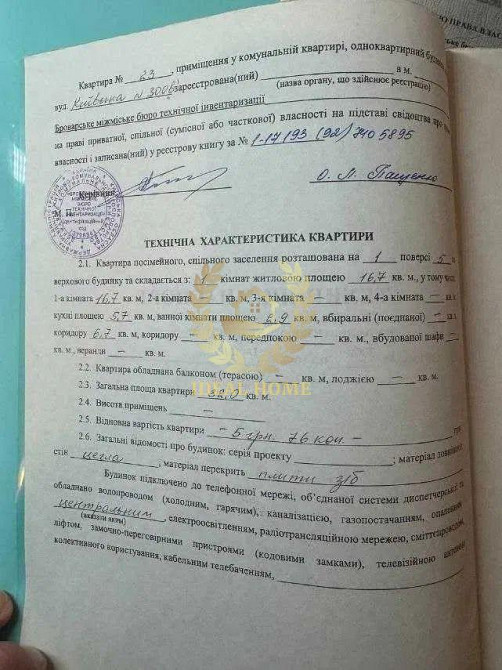 ) ПРАВА В ЗАС
Квартира № 23, приміщення у комунальній квартирі, одноквартирний буди
вул. Київська № 300в зареєстрована(ний) в м.
(назва органу, що здійснює реєстрацію)
Броварське міжміське бюро технічної інвентаризації
на праві приватної, спільної (сумісної або часткової) власності на підставі свідоцтва про
власності і записана(ний) у реєстрову книгу за №
Керівник О. М. Пащенко
М. П.
ТЕХНІЧНА ХАРАКТЕРИСТИКА КВАРТИРИ
2.1. Квартира посімейного, спільного заселення розташована на 1 поверсі 5
верхового будинку та складається з: 1 кімнат житловою площею 16,7 кв. м., у тому числ
1-а кімната 16,7 кв. м, 2-а кімната – кв. м, 3-я кімната – кв. м, 4-а кімната –
кухні площею 5,7 кв. м, ванної кімнати площею 2,9 кв. м, вбиральні (поєднаної) –
коридору 6,7 кв. м, коридору – кв. м, передпокою – кв. м., вбудованої шафи –
кв. м., веранди – кв. м.
2.2. Квартира обладнана балконом (терасою) – кв. м, лоджією – кв. м.
2.3. Загальна площа квартири 32,0 кв. м.
2.4. Висота приміщень –
2.5. Відновна вартість квартири – 5 грн. 76 коп –
2.6. Загальні відомості про будинок: серія проекту ; матеріал зовнішніх
стін цегла, матеріал перекрить плити з/б
Будинок підключено до телефонної мережі, об'єднаної системи диспетчерської та
обладнано водопроводом (холодним, гарячим), каналізацією, газопостачанням, опаленням
центральним, електроосвітленням, радіотрансляційною мережею, сміттєпроводом,
(вказати яким)
ліфтом, замочно-переговорними пристроями (кодовими замками), телевізійною антеною
колективного користування, кабельним телебаченням,
IDEAL HOME